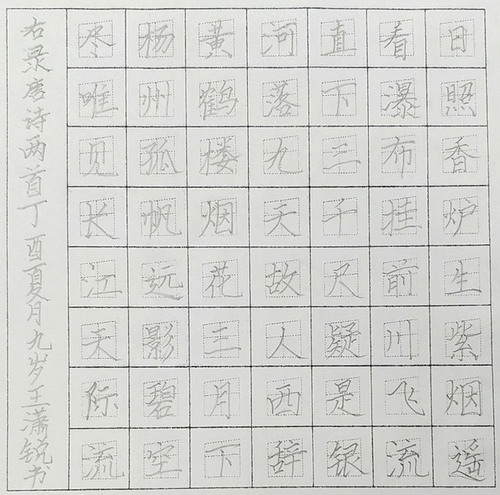 日照香炉生紫烟遥
看瀑布挂前川飞流
直下三千尺疑是银
河落九天故人西辞
黄鹤楼烟花三月下
杨州孤帆远影碧空
尽唯见长江天际流
右录唐诗两首丁酉夏月九岁王潇锐书